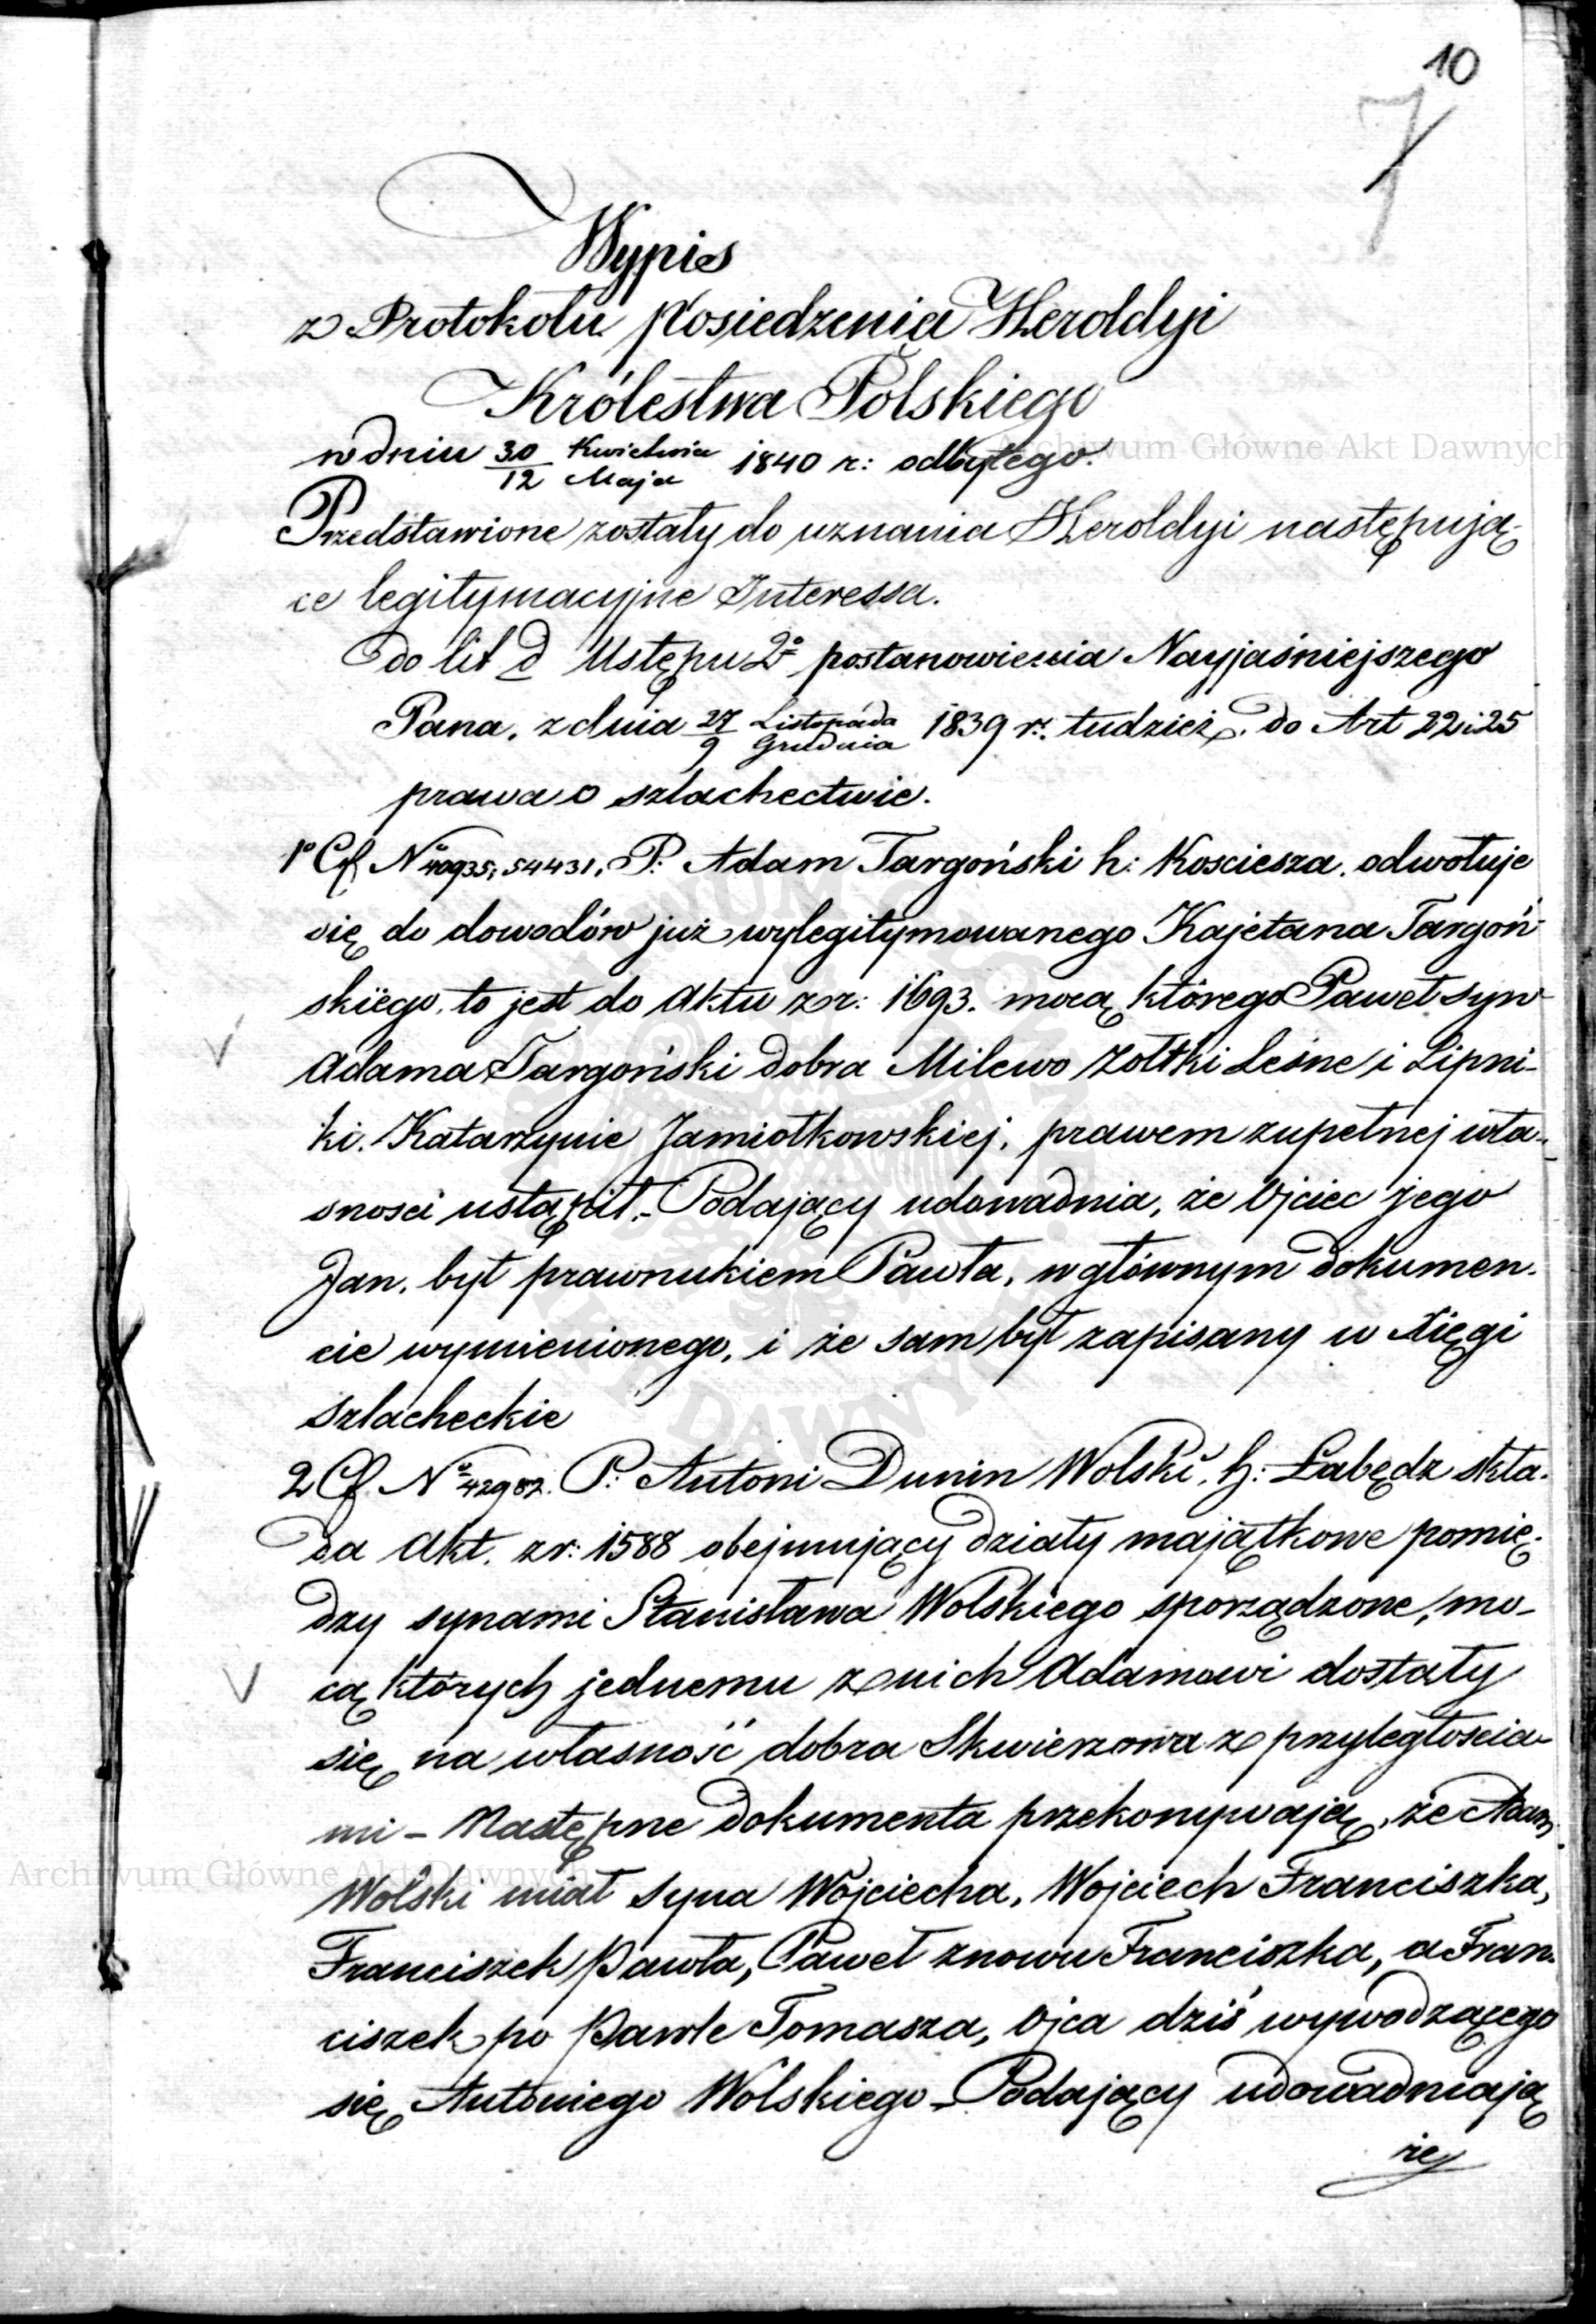 10
7
Wypis
z Protokołu Posiedzenia Heroldyi
Królestwa Polskiego
w dniu 30/12 Kwietnia/Maja 1840 r: odbytego.
Przedstawione zostały do uznania Heroldyi następują-
ce legitymacyjne Interessa.
do lit d Ustępu 2º postanowienia Nayjaśniejszego
Pana, z dnia 27/9 Listopada/Grudnia 1839 r. tudzież do Art 22 i 25
prawa o szlachectwie.
1º Cf Nº 40935; 54431, P. Adam Targoński h: Kosciesza. odwołuje
się do dowodów już wylegitymowanego Kajetana Targoń-
skiego, to jest do Aktu z r: 1693. mocą którego Paweł syn
Adama Targoński dobra Milewo Zołtki Leśne i Lipni-
ki. Katarzynie Jamiołkowskiej, prawem zupełnej wła-
snosci ustąpił.- Podający udowadnia, że Ojciec jego
Jan. był prawnukiem Pawła, w głównym dokumen-
cie wymienionego, i że sam był zapisany w Xięgi
szlacheckie
2 Cf Nº 42982. P. Antoni Dunin Wolski, h: Łabędz skła-
da Akt. z r: 1588 obejmujący działy majątkowe pomię-
dzy synami Stanisława Wolskiego sporządzone, mo-
cą których jednemu z nich Adamowi dostały
się na własność dobra Skwierzowa z przyległościa-
mi - Następne dokumenta przekonywają, że Adam
Wolski miał syna Wojciecha, Wojciech Franciszka,
Franciszek Pawła, Paweł znowu Franciszka, a Fran-
ciszek po Pawle Tomasza, Ojca dziś wywodzącego
się Antoniego Wolskiego - Podający udowadniają
że
Archiwum Główne Akt Dawnych
Archiwum Główne Akt Dawnych